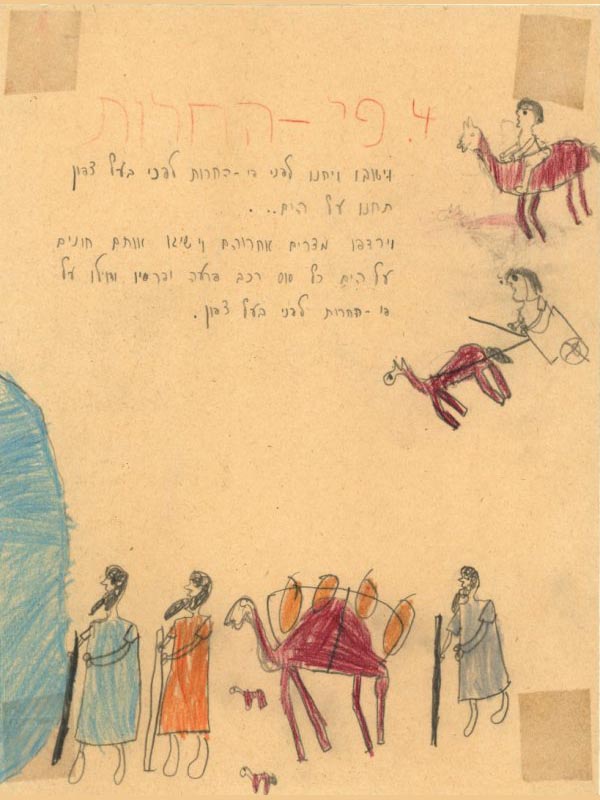 4. פי-החרות
וישובו ויחנו לפני פי-החרות לפני בעל צפון
תחנו על הים...
וירדפו מצרים אחריהם וישיגו אותם חונים
על הים כל סוס רכב פרעה ופרשיו וחילו על
פי-החרות לפני בעל צפון.